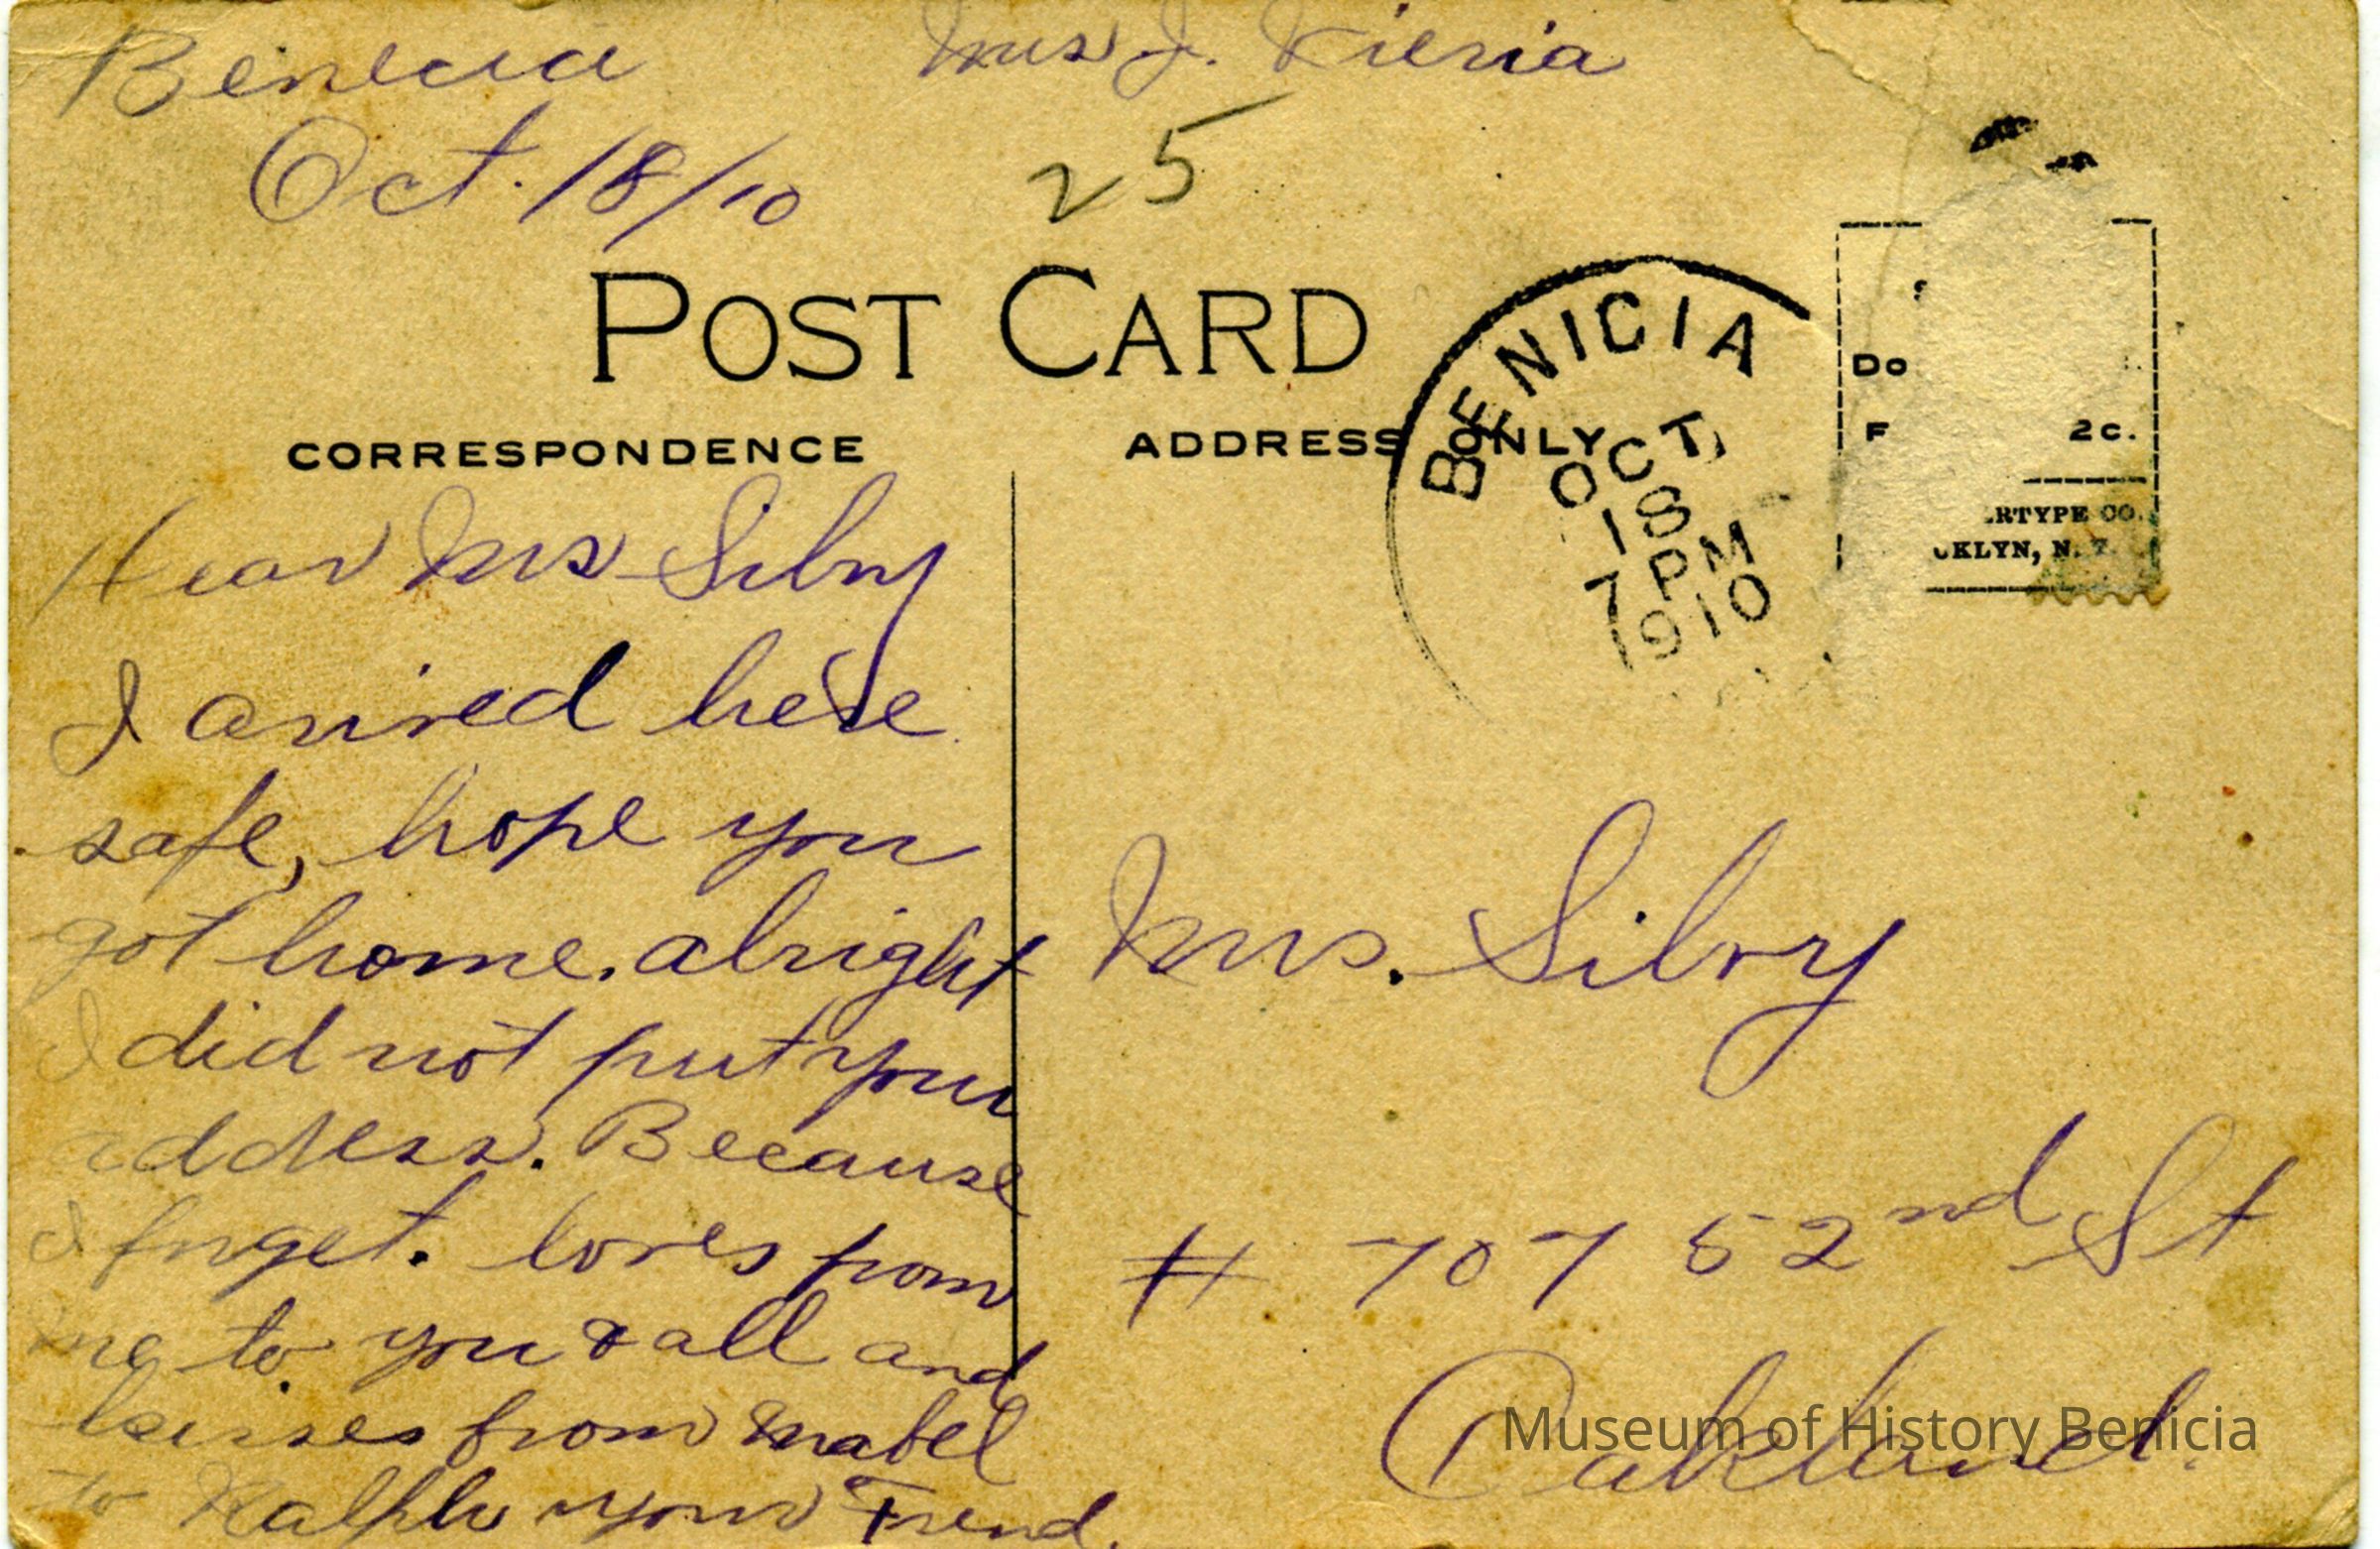 Benecia Mrs J.
Oct. 18/10
25
POST CARD
CORRESPONDENCE
ADDRESS ONLY
BENICIA
OCT
18
7 PM
1910
Do
F 2c.
RTYPE CO.
KLYN, N. Y.
Dear Mrs Silvy
I arrived here
safe, hope you
got home. alright
I did not put your
address. Because
I forget. loves from
me to you & all and
kisses from Mabel
to Ralph your Friend.
Mrs. Silvy
# 707 52nd St
Oakland.
Museum of History Benicia